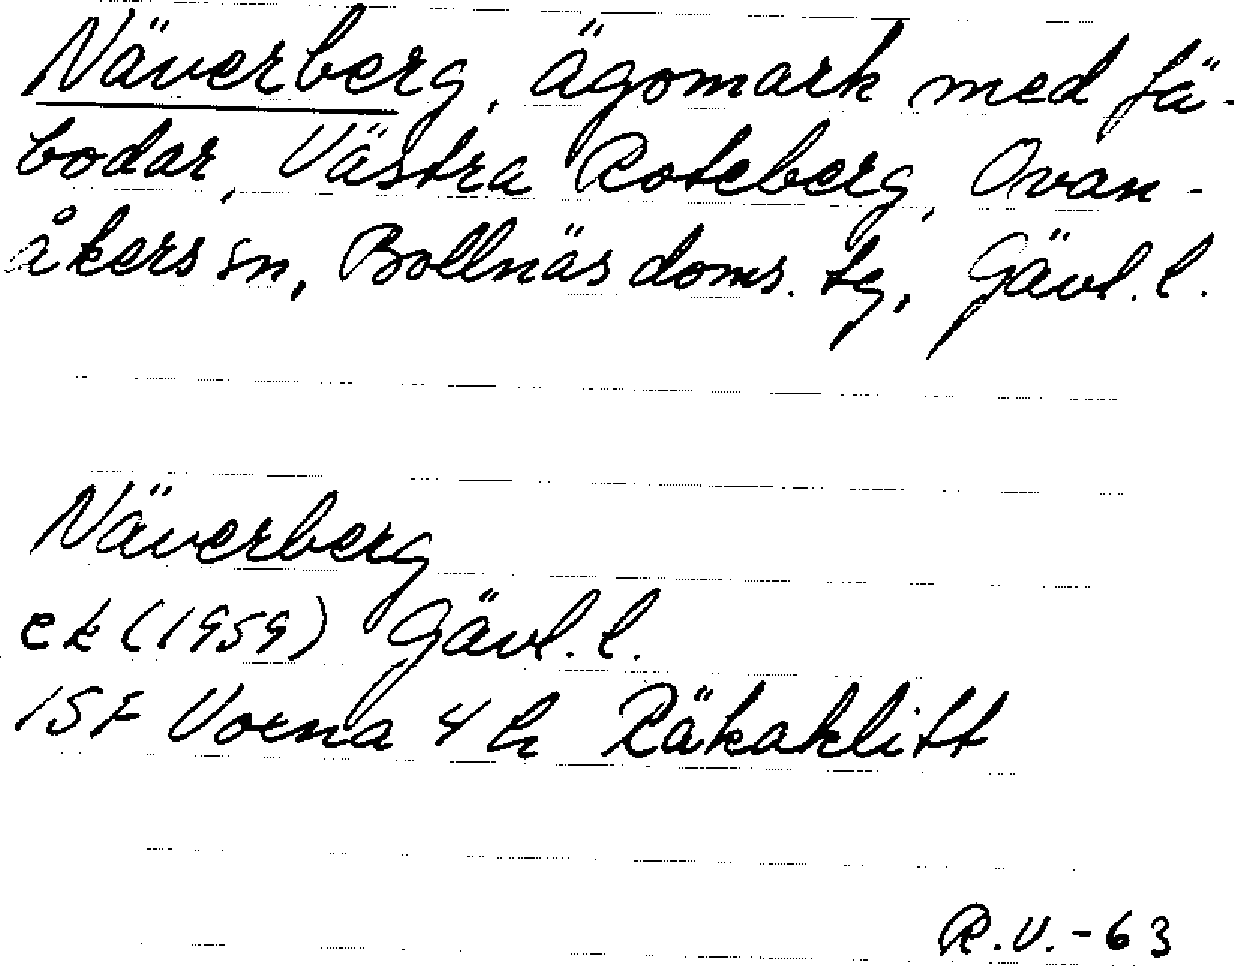 Näverberg, ägomark med fä-
bodar, Västra Roteberg, Ovan-
åkers sn, Bollnäs doms. tg, Gävl. l.
Näverberg
ek (1959) Gävl. l.
15F Vorna 4 h Räkaklitt
R.V.-63